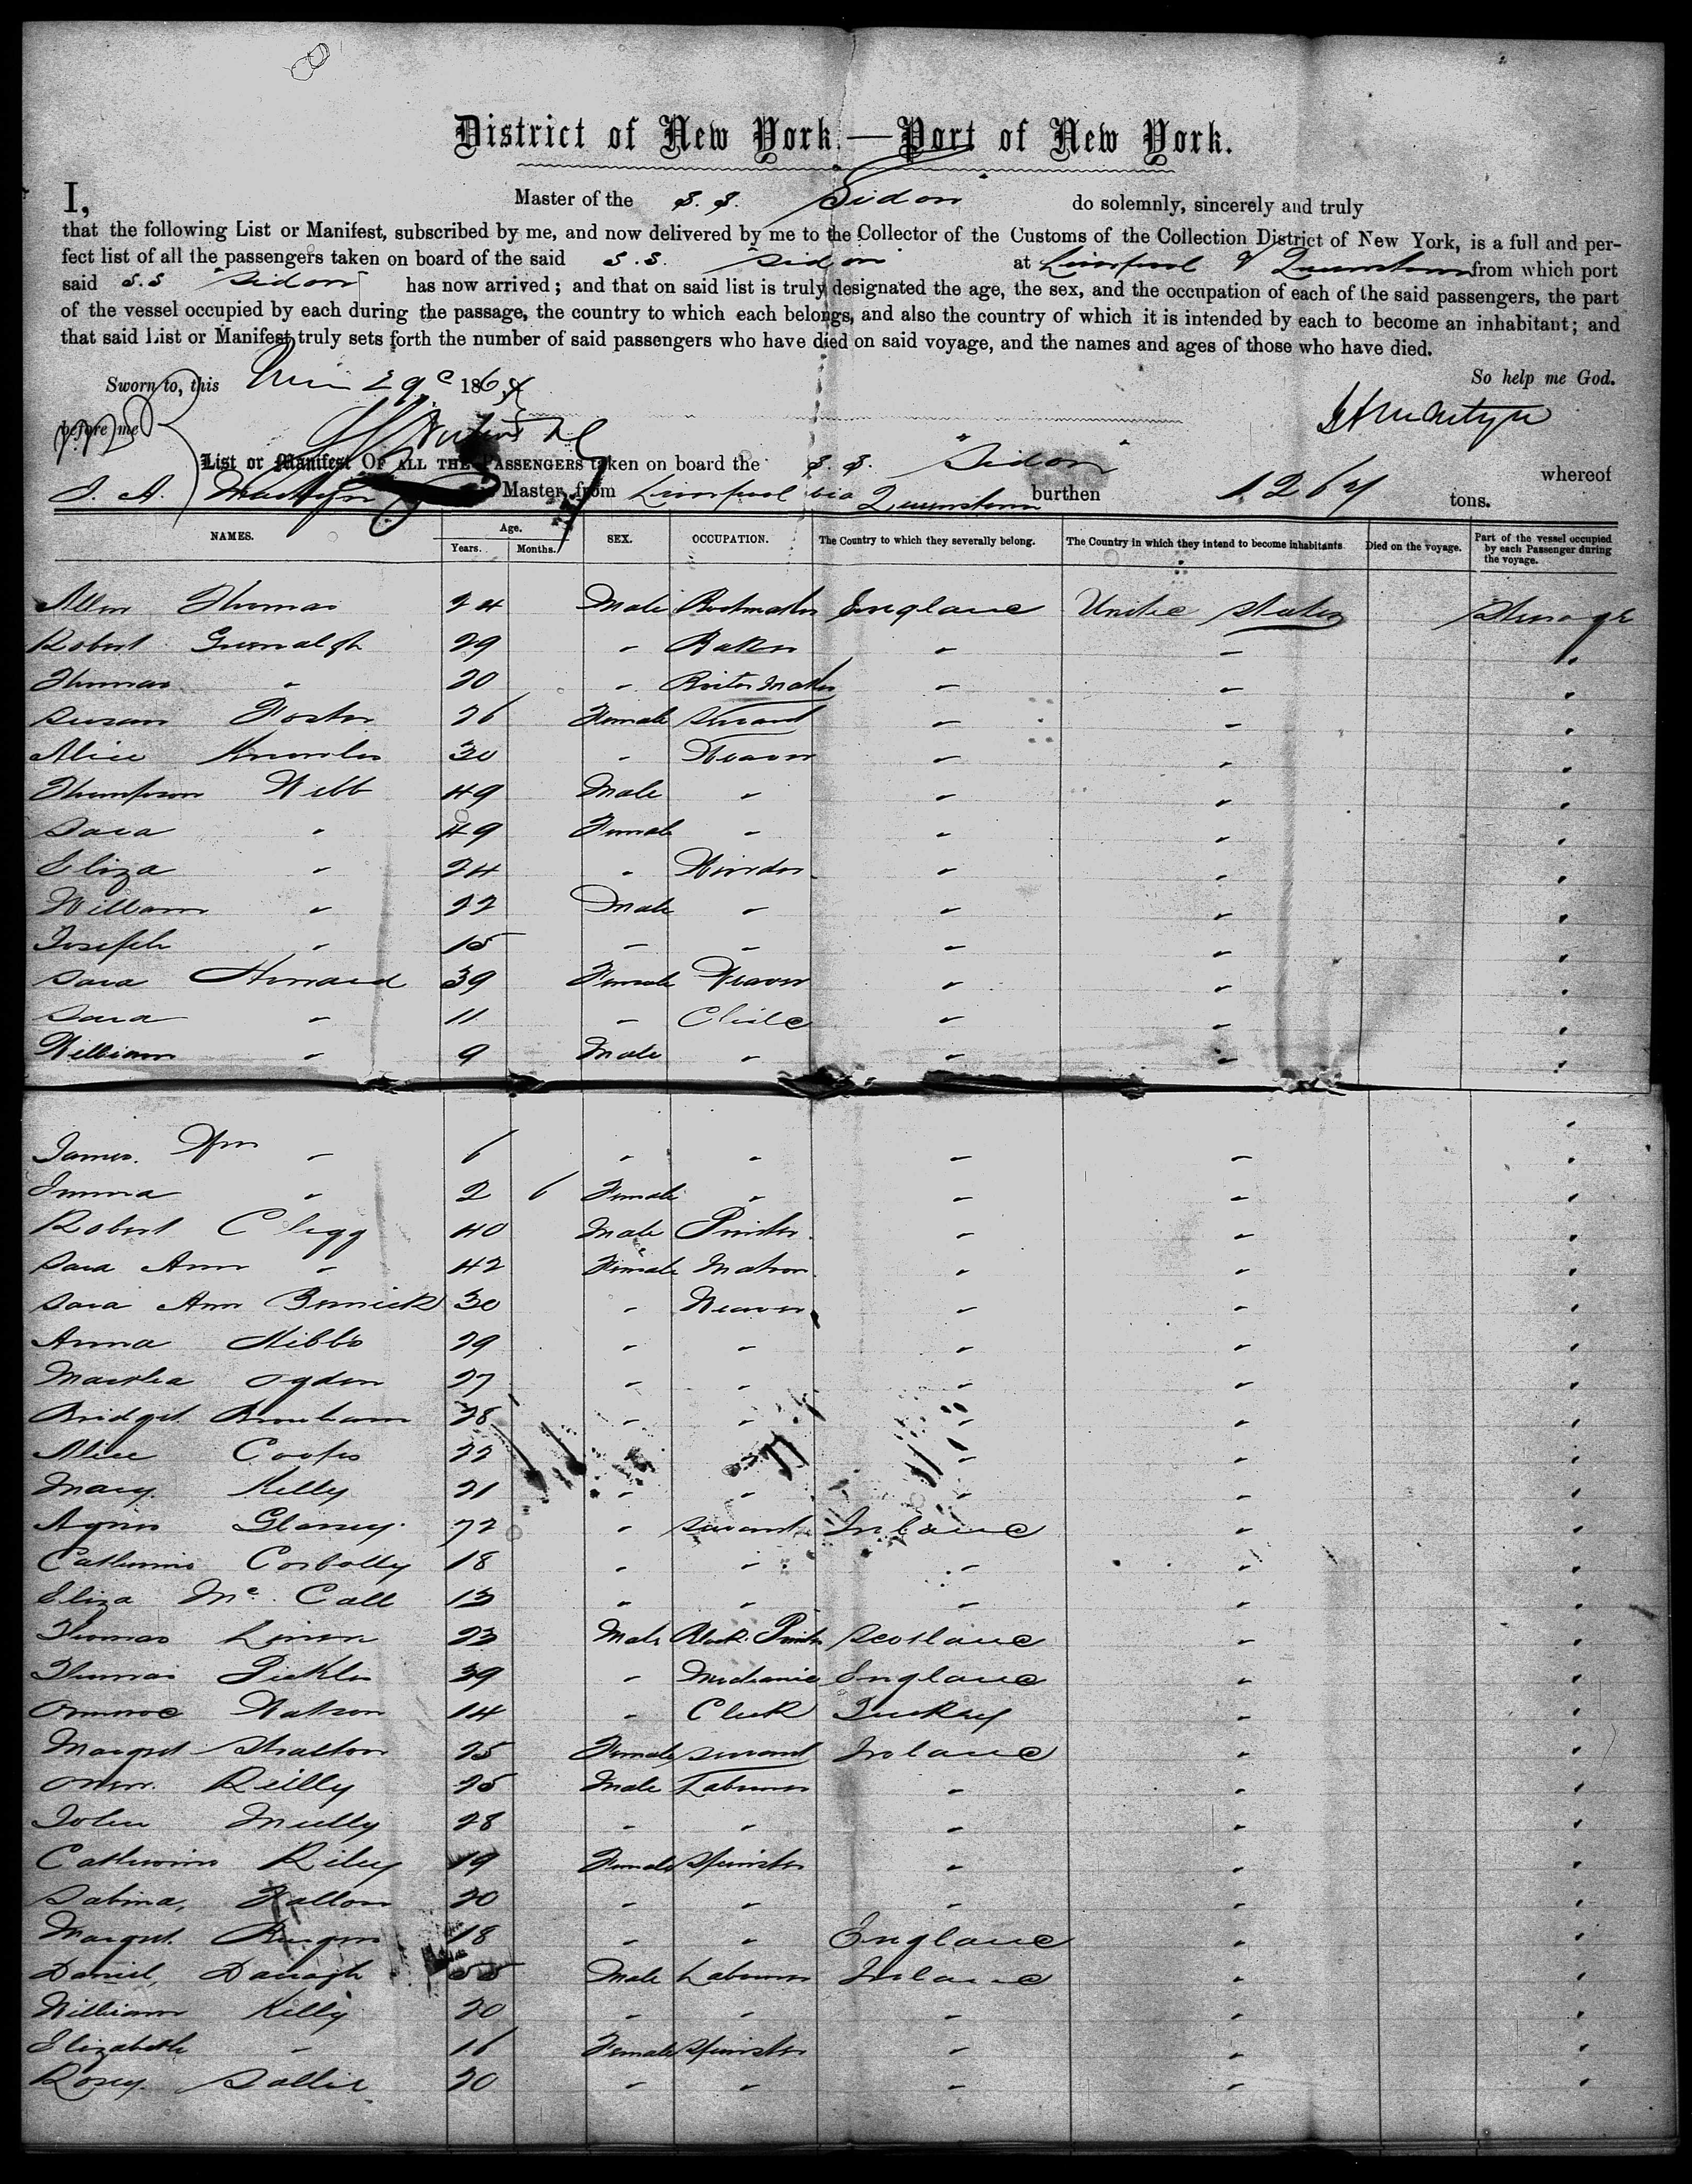 District of New York.—Port of New York.
I, Master of the S. S. Sidon do solemnly, sincerely and truly
that the following List or Manifest, subscribed by me, and now delivered by me to the Collector of the Customs of the Collection District of New York, is a full and per-
fect list of all the passengers taken on board of the said S. S. Sidon at Liverpool & Queenstown from which port
said S.S Sidon has now arrived; and that on said list is truly designated the age, the sex, and the occupation of each of the said passengers, the part
of the vessel occupied by each during the passage, the country to which each belongs, and also the country of which it is intended by each to become an inhabitant; and
that said List or Manifest truly sets forth the number of said passengers who have died on said voyage, and the names and ages of those who have died.
Sworn to, this 29 186 So help me God.
before me
List or Manifest OF ALL THE PASSENGERS taken on board the S. S. "Sidon" whereof
Master, from Liverpool via Queenstown burthen tons.
NAMES. Age. Years. Months. SEX. OCCUPATION. The Country to which they severally belong. The Country in which they intend to become inhabitants. Died on the voyage. Part of the vessel occupied by each Passenger during the voyage.
Allen Thomas 24 Male Bootmaker England United States Steerage
Robert 29 " Baker " " "
Thomas " 20 " " " "
Susan Foster 26 Female Servant " " "
Alice Knowles 30 " Weaver " " "
Thompson Webb 49 Male " " " "
Sara " 49 Female " " " "
Eliza " 24 " Winder " " "
William " 22 Male " " " "
Joseph " 15 " " " " "
Sara Howard 39 Female Weaver " " "
Sara " 11 " Child " " "
William " 9 Male " " " "
James Wm " 6 " " " " "
Emma " 2 6 Female " " " "
Robert Clegg 40 Male Printer " " "
Sara Ann " 42 Female Matron " " "
Sara Ann 30 " Weaver " " "
Anna Hibbs 29 " " " " "
Martha Ogden 27 " " " " "
Bridget 28 " " " " "
Alice Cooper 22 " "
Mary Kelly 21 " " " " "
Agnes 22 " Servant Ireland " "
Catherine Corbally 18 " " " " "
Eliza Mc Call 13 " " " " "
Thomas 23 Male Block Printer Scotland " "
Thomas Pickles 39 " Mechanic England " "
Watson 14 " Clerk Turkey " "
Margret Stratton 25 Female Servant Ireland " "
Owen Reilly 25 Male Labourer " " "
John Mully 28 " " " " "
Catherine Riley 19 Female Spinster " " "
Sabina, Fallon 20 " " " " "
Margret 18 " " England " "
Daniel, 55 Male Labourer Ireland " "
William Kelly 20 " " " " "
Elizabeth " 16 Female Spinster " " "
Rosey 20 " " " " "